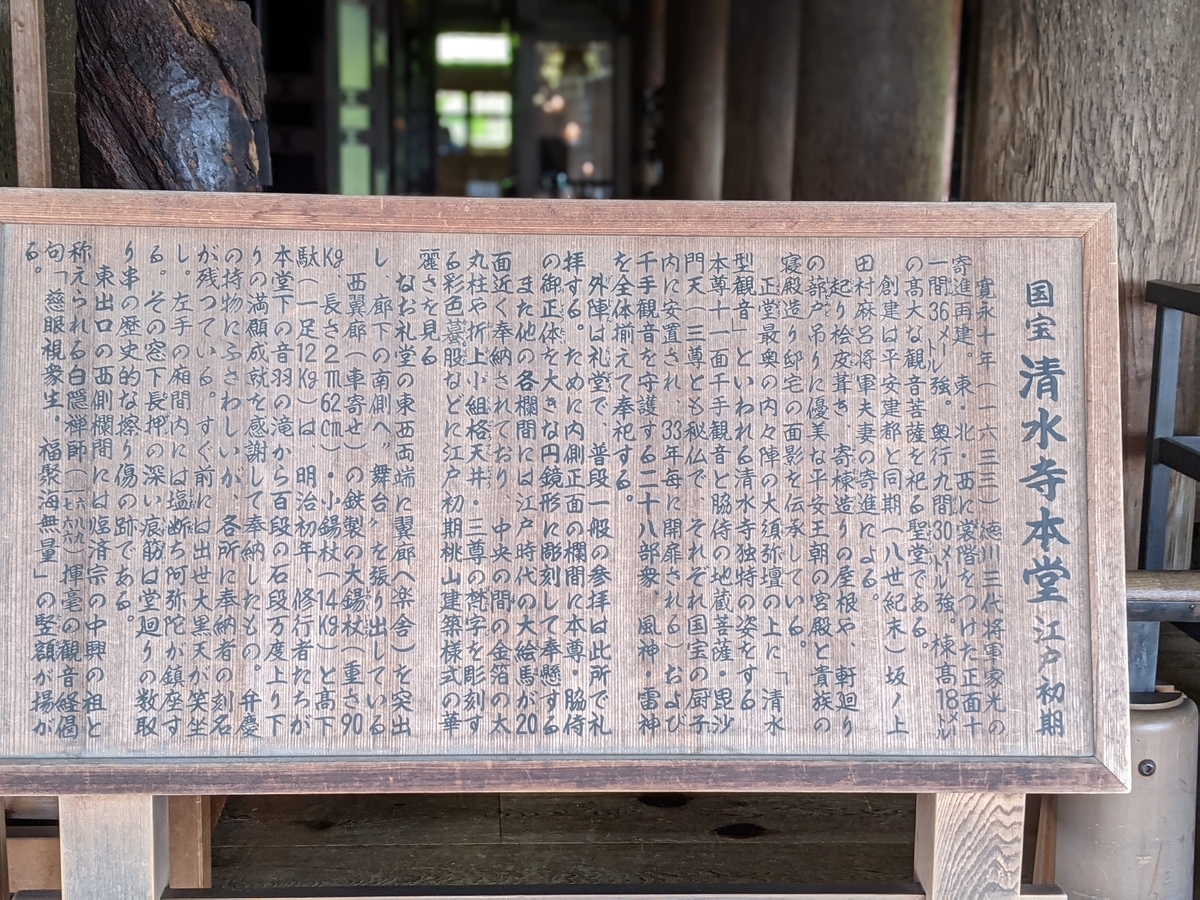 国宝 清水寺本堂 江戸初期
寛永十年（一六三三）徳川三代将軍家光の
寄進再建。東・北・西に裳階をつけた正面十
一間36メートル強。奥行九間30メートル強。棟高18メートル
の高大な観音菩薩を祀る聖堂である。
創建は平安建都と同期（八世紀末）坂ノ上
田村麻呂将軍夫妻の寄進による。
起り桧皮葺き、寄棟造りの屋根や、軒廻り
の蔀戸吊りに優美な平安王朝の宮殿と貴族の
寝殿造り邸宅の面影を伝承している。
正堂最奥の内々陣の大須弥壇の上に「清水
型観音」といわれる清水寺独特の姿をする
本尊十一面千手観音と脇侍の地蔵菩薩・毘沙
門天（三尊とも秘仏で、それぞれ国宝の厨子
内に安置され、33年毎に開扉される）および
千手観音を守護する二十八部衆、風神・雷神
を全体揃えて奉祀する。
外陣は礼堂で、普段一般の参拝は此所で礼
拝する。ために内側正面の欄間に本尊・脇侍
の御正体を大きな円鏡形に彫刻して奉懸する
また他の各欄間には江戸時代の大絵馬が20
面近く奉納されており、中央の間の金箔の太
丸柱や折上小組格天井・三尊の梵字を彫刻す
る彩色蟇股などに江戸初期桃山建築様式の華
麗さを見る
なお礼堂の東西両端に翼廊（楽舎）を突出
し、廊下の南側へ〝舞台〟を張り出している
西翼廊（車寄せ）の鉄製の大錫杖（重さ90
Kg、長さ2m62cm）・小錫杖（14Kg）と高下
駄（一足12Kg）は、明治初年、修行者たちが
本堂下の音羽の滝から百段の石段万度上り下
りの満願成就を感謝して奉納したもの。弁慶
の持物にふさわしいが、各所に奉納者の刻名
が残っている。すぐ前には出世大黒天が笑坐
し。左手の廂間内には塩断ち阿弥陀が鎮座す
る。その窓下長押の深い痕筋は堂廻りの数取
り串の歴史的な擦り傷の跡である。
東出口の西側欄間には臨済宗の中興の祖と
称えられる白隠禅師（一六八五〜一七六八）揮毫の観音経偈
句「慈眼視衆生。福聚海無量」の竪額が揚が
る。